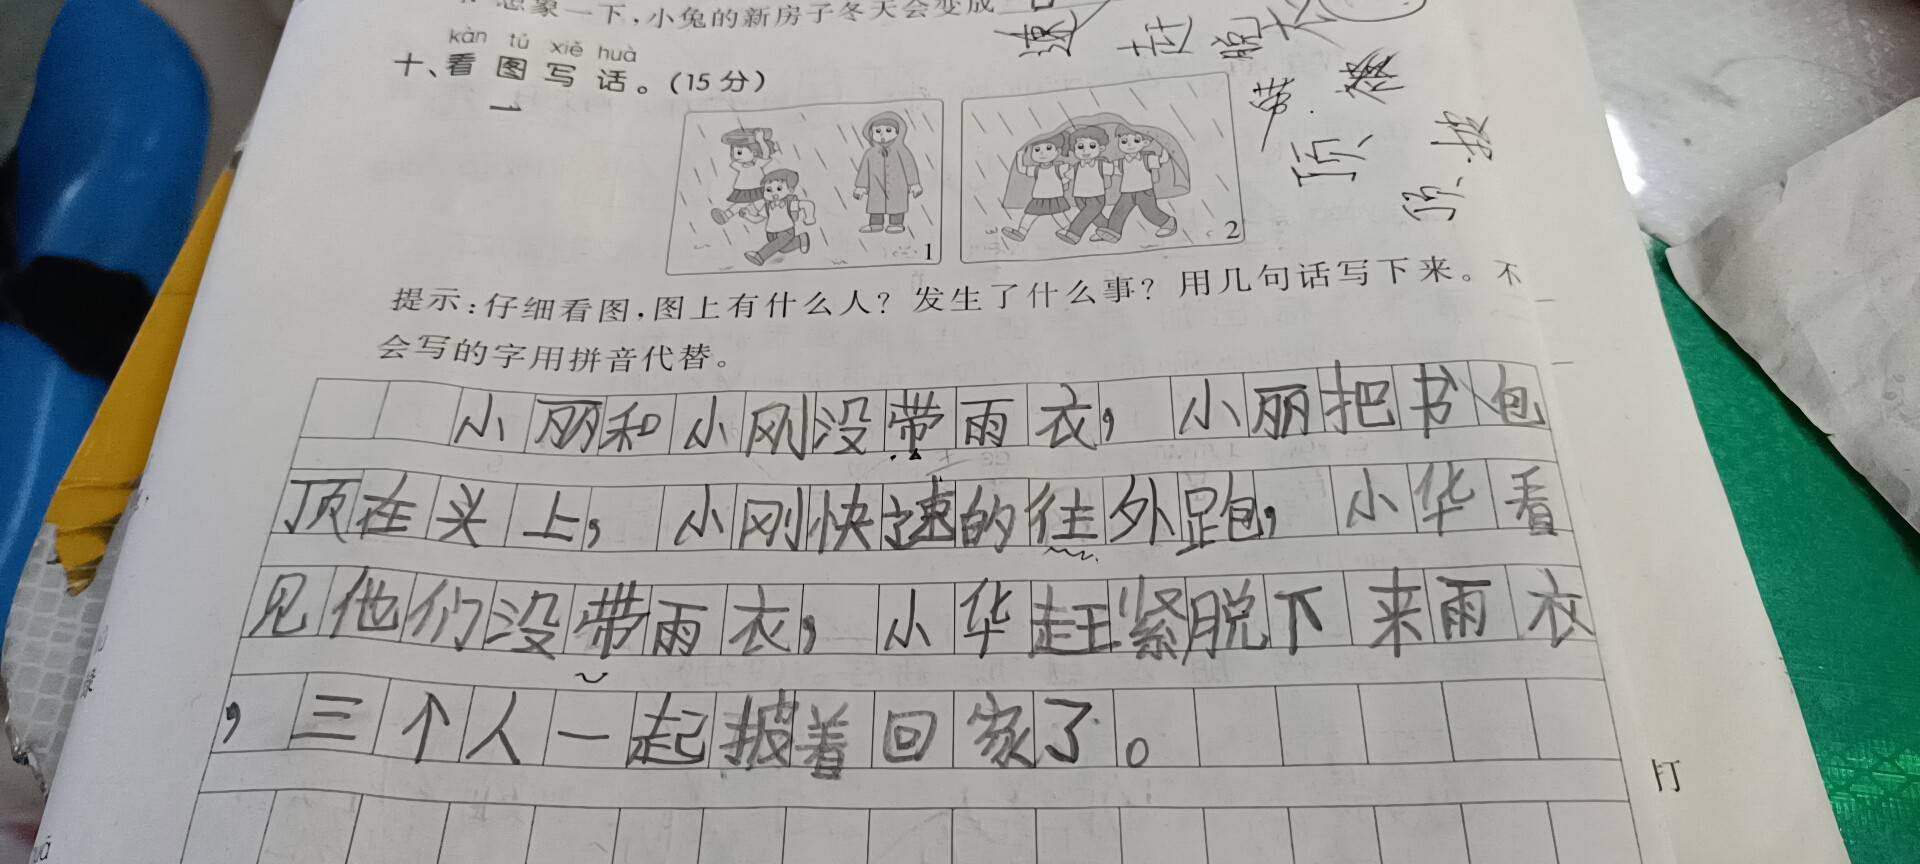 想象一下,小兔的新房子冬天会变成
kàn tú xiě huà
十、看图写话。(15分)
速 赶 脱
带. 
顶、
披
1
2
提示:仔细看图,图上有什么人?发生了什么事?用几句话写下来。不
会写的字用拼音代替。
小丽和小刚没带雨衣,小丽把书包
顶在头上,小刚快速的往外跑,小华看
见他们没带雨衣,小华赶紧脱下来雨衣
,三个人一起披着回家了。
打